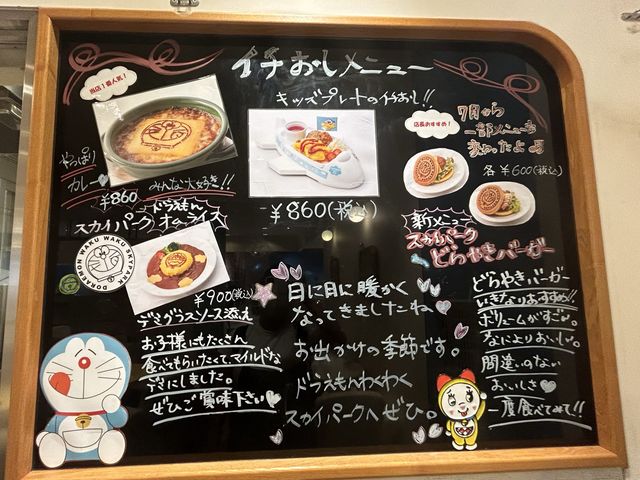 イチおしメニュー
当店1番人気!
やっぱり
カレー
みんな大好き!!
¥860
キッズプレートのイチおし!!
¥860(税込)
店長おすすめ!
7月から
一部メニューも
変わったよ
各¥600(税込)
ドラえもん
スカイパークオムライス
DORAEMON WAKU WAKU SKYPARK
¥900(税込)
デミグラスソース添え
お子様にもたくさん
食べてもらいたくてマイルドな
味にしました。
ぜひご賞味下さい
日に日に暖かく
なってきましたね
お出かけの季節です。
ドラえもんわくわく
スカイパークへぜひ。
新メニュー
スカイパーク
どらやきバーガー
どらやきバーガー
いきなりおすすめ!!
ボリュームがすごい。
なによりおいしい。
間違いのない
おいしさ
一度食べてみて!!